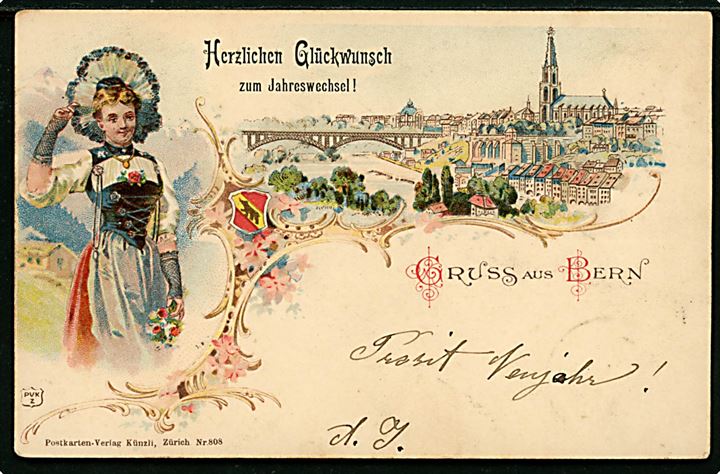 Herzlichen Glückwunsch
zum Jahreswechsel!
GRUSS AUS BERN
Prosit Neujahr!
d. J.
PVK
Z
Postkarten-Verlag Künzli, Zürich Nr. 808